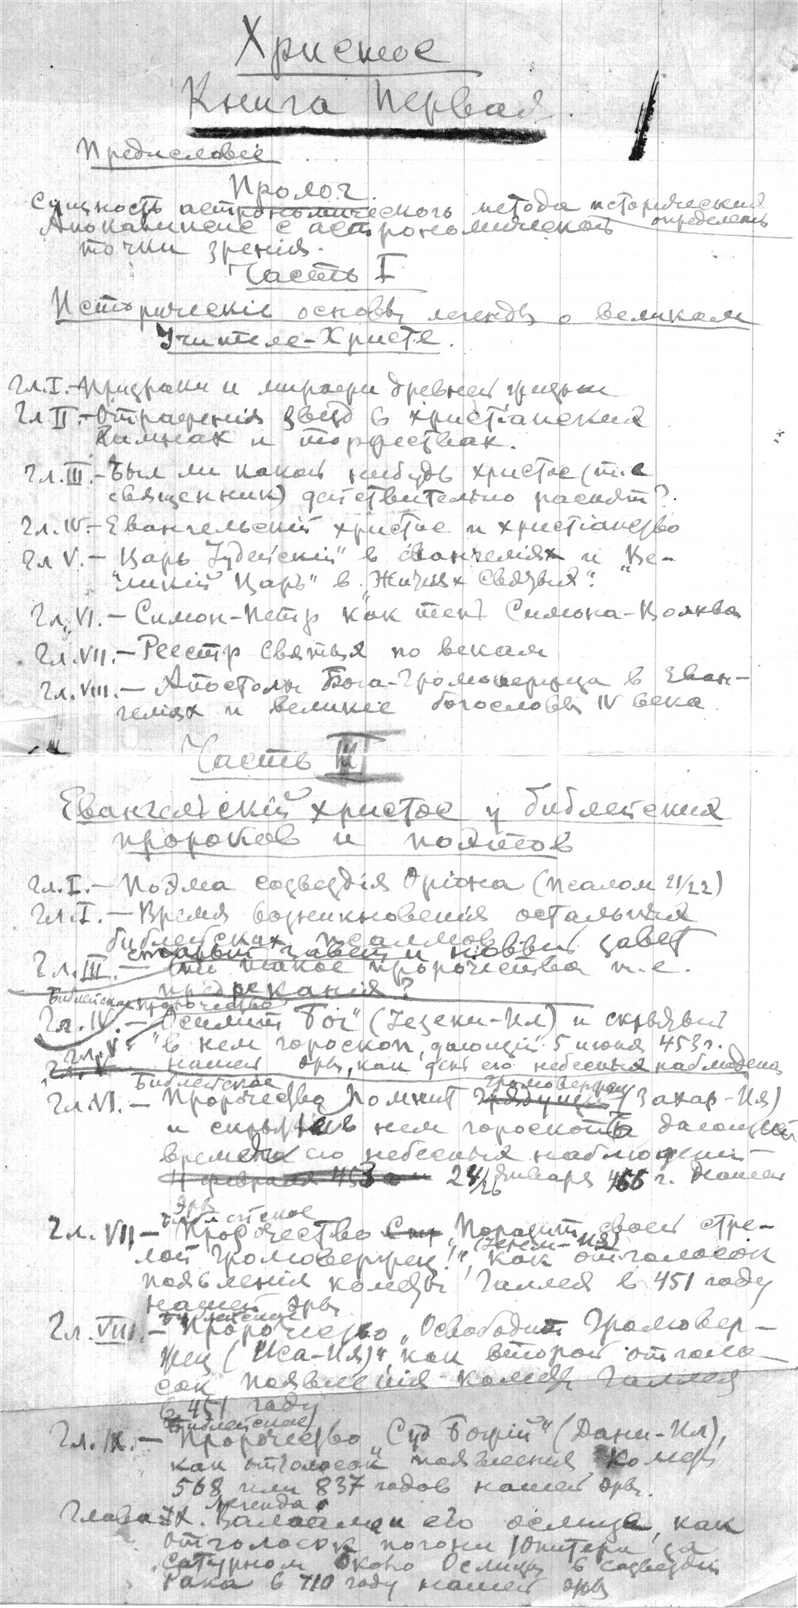 Христос
Книга Первая
Предисловіе
Пролог
Сущность астрономического метода исторический
Апокалипсис с астрономической определеть
точки зренія.
Часть I
Историческіе основы легенды о великом
Учителе-Христе.
Гл. I.- Призраки и миражи древней
Гл II.- Отраженія звезд в христіанских
гимнах и торжествах.
Гл. III.- Был ли какой нибудь христос (т.е
священник) дѣйствительно распят?
Гл. IV.- Евангельскій христос и христіанство
Гл V.- „Царь Іудейскій" в евангеліях и „Ве-
ликій Царь" в „Житіях Святых".
Гл. VI.- Симон-Петр как тень Симона-Волхва
Гл. VII.- Реестр святых по векам
Гл. VIII.- Апостолы Бога-Громовержца в Еван-
геліях и великие богословы IV века.
Часть II
Евангельскій христос у библейских
пророков и поэтов
Гл. I.- Поэма созвездія Оріона (псалом 21/22)
Гл. I.- Время возникновения остальных
библейских псалмов
старый завет и новый завет
Гл. III.- Что такое пророчества т.е.
предрекания?
Библейское пророчество
Гл. IV.- „Осилит Бог" (Іезеки-Ил) и скрытый
Гл. V. в нем гороскоп, дающій 5 июня 453 г.
нашей эры, как день его небесных наблюдений
Библейское Громовержец
Гл. VI.- Пророчество Помнит (Захар-Ия)
и скрытые в нем гороскопы дающий
время его небесных наблюдений
11 февраля 453 24/26 января 466 г. нашей
эры
Библейское
Гл. VII- Пророчество „Поразит своей стре-
лой Громовержец!", как отголосок
появленія кометы Галлея в 451 году
нашей эры
Библейское
Гл. VIII.- Пророчество „Освободит Громовер-
жец (Иса-Ия)", как второй отголо-
сок появленія кометы Галлея
в 451 году
Библейское
Гл. IX.- Пророчество „Суд Божій" (Дани-Ил),
как отголосок появления комет
568 или 837 годов нашей эры.
легенда о
Глава IX. Валааме и его ослице, как
отголосок погони Юпитера за
Сатурном около Ослицы в созвездии
Рака в 710 году нашей эры